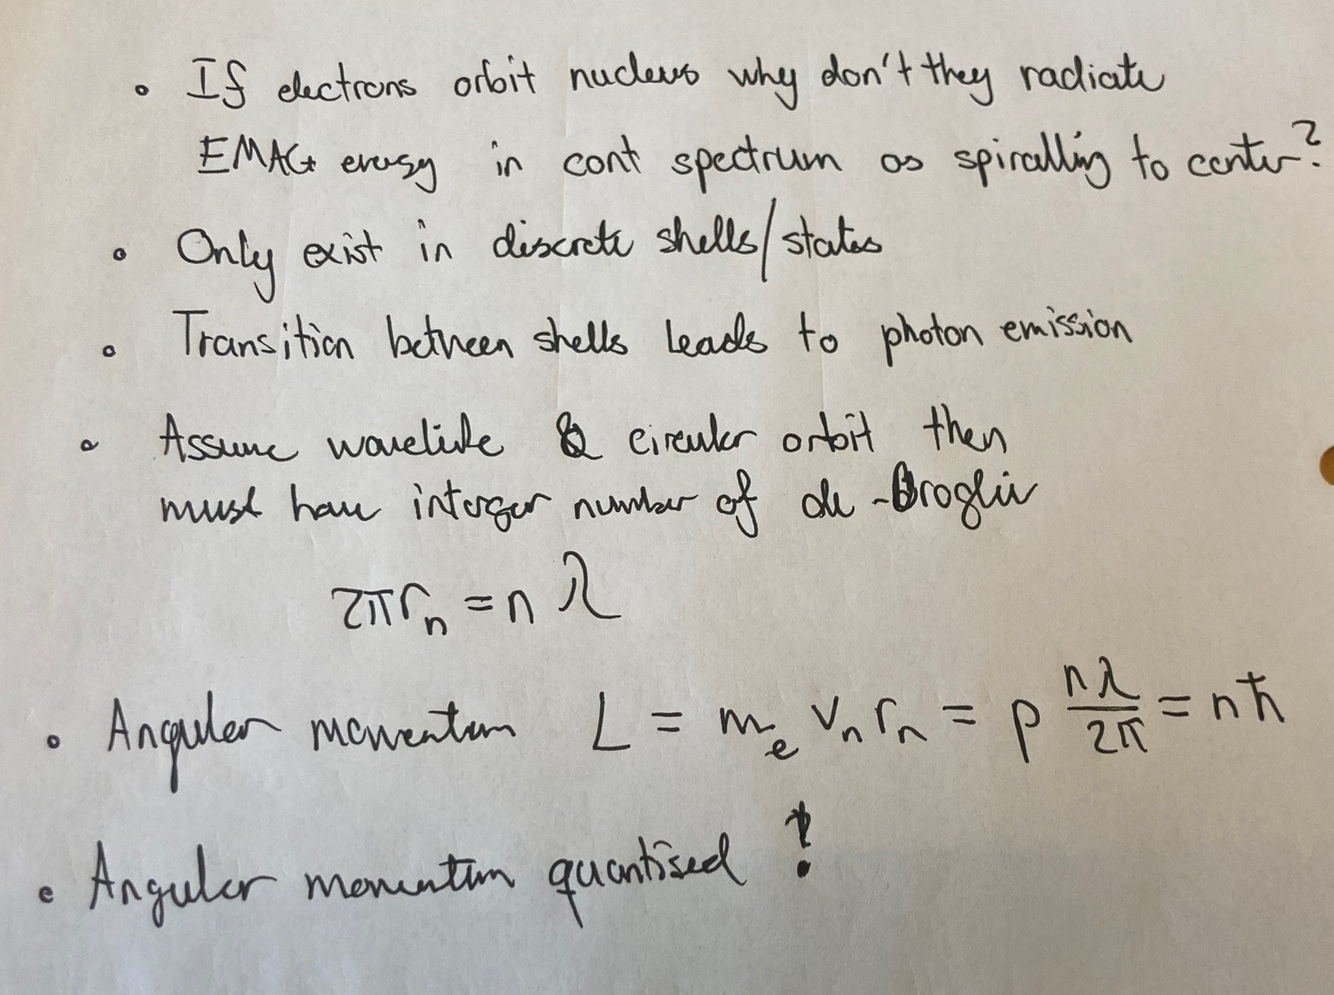 • If electrons orbit nucleus why don't they radiate
EMAG energy in cont spectrum as spiralling to center?
• Only exist in discrete shells/states
• Transition between shells leads to photon emission
• Assume wavelike & circular orbit then
must have interger number of de-Broglie
2πrₙ = n λ
• Angular momentum L = mₑ vₙ rₙ = p nλ/2π = nħ
• Angular momentum quantised !